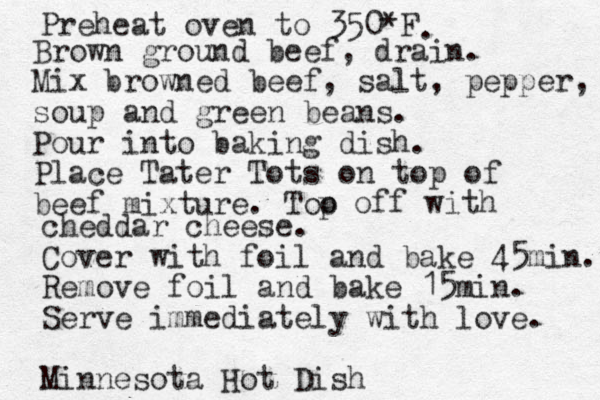 Preheat oven to 350*F.
Brown ground beef, drain.
Mix browned beef, salt, pepper,
soup and green beans.
Pour into baking dish.
Place Tater Tots on top of
beef mixture. Top off with
cheddar cheese.
Cover with foil and bake 45min.
Remove foil and bake 15min.
Serve immediately with love.
Minnesota Hot Dish